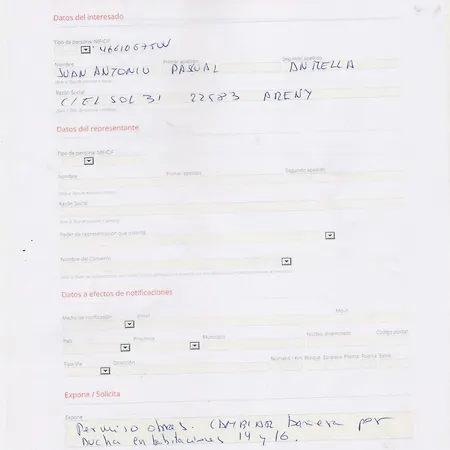 Datos del interesado
Tipo de persona NIF/CIF
Nombre Primer apellido Segundo apellido
JUAN ANTONIO PASQUAL
Razón Social
C/ EL SOL 31 22583 ARENY
Datos del representante
Tipo de persona NIF/CIF
Nombre Primer apellido Segundo apellido
Razón Social
Poder de representación que ostenta
Nombre del Convenio
Datos a efectos de notificaciones
Medio de notificación Email Móvil
País Provincia Municipio Núcleo diseminado Código postal
Tipo Vía Dirección Número / Km Bloque Escalera Planta Puerta Extra
Expone / Solicita
Expone
Permiso obras. CAMBIAR bañera por
ducha en habitaciones 14 y 16.